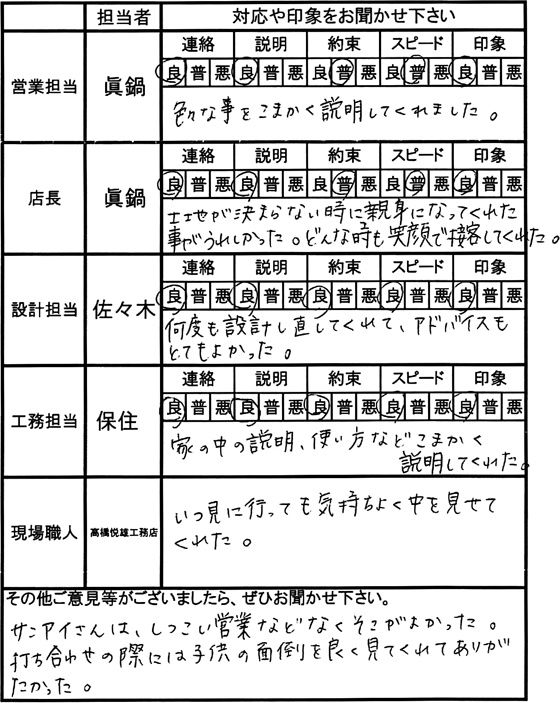 担当者 対応や印象をお聞かせ下さい
連絡 説明 約束 スピード 印象
営業担当 眞鍋 良 普 悪 良 普 悪 良 普 悪 良 普 悪 良 普 悪
色々な事をこまかく説明してくれました。
連絡 説明 約束 スピード 印象
店長 眞鍋 良 普 悪 良 普 悪 良 普 悪 良 普 悪 良 普 悪
土地が決まらない時に親身になってくれた
事がうれしかった。どんな時も笑顔で接客してくれた。
連絡 説明 約束 スピード 印象
設計担当 佐々木 良 普 悪 良 普 悪 良 普 悪 良 普 悪 良 普 悪
何度も設計し直してくれて、アドバイスも
とてもよかった。
連絡 説明 約束 スピード 印象
工務担当 保住 良 普 悪 良 普 悪 良 普 悪 良 普 悪 良 普 悪
家の中の説明、使い方などこまかく
説明してくれた。
現場職人 高橋悦雄工務店
いつ見に行っても気持ちよく中を見せて
くれた。
その他ご意見等がございましたら、ぜひお聞かせ下さい。
サンアイさんは、しつこい営業などなくそこがよかった。
打ち合わせの際には子供の面倒を良く見てくれてありが
たかった。